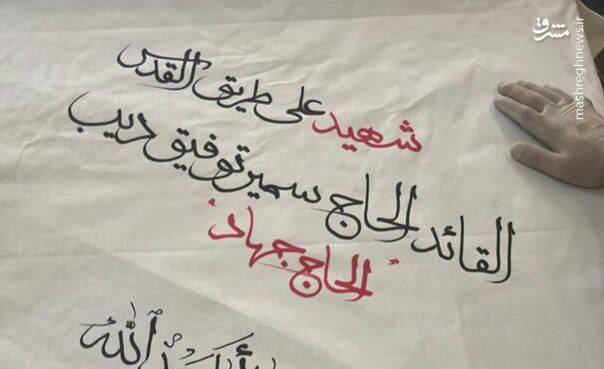 شهيد على طريق القدس
القائد الحاج سمير توفيق ديب
"الحاج جهاد"
الله
مشرق
mashreghnews.ir